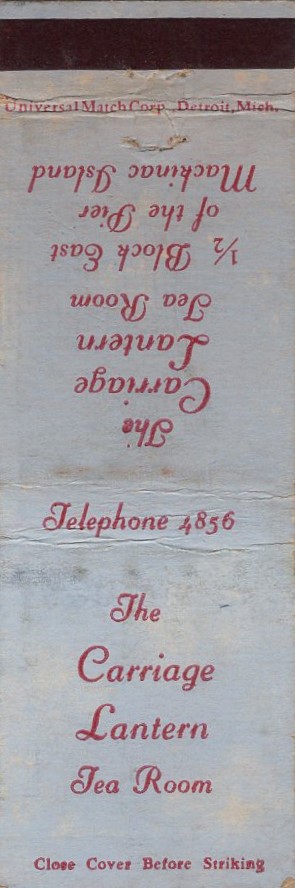 Universal Match Corp., Detroit, Mich.
The
Carriage
Lantern
Tea Room
½ Block East
of the Pier
Mackinac Island
Telephone 4856
The
Carriage
Lantern
Tea Room
Close Cover Before Striking